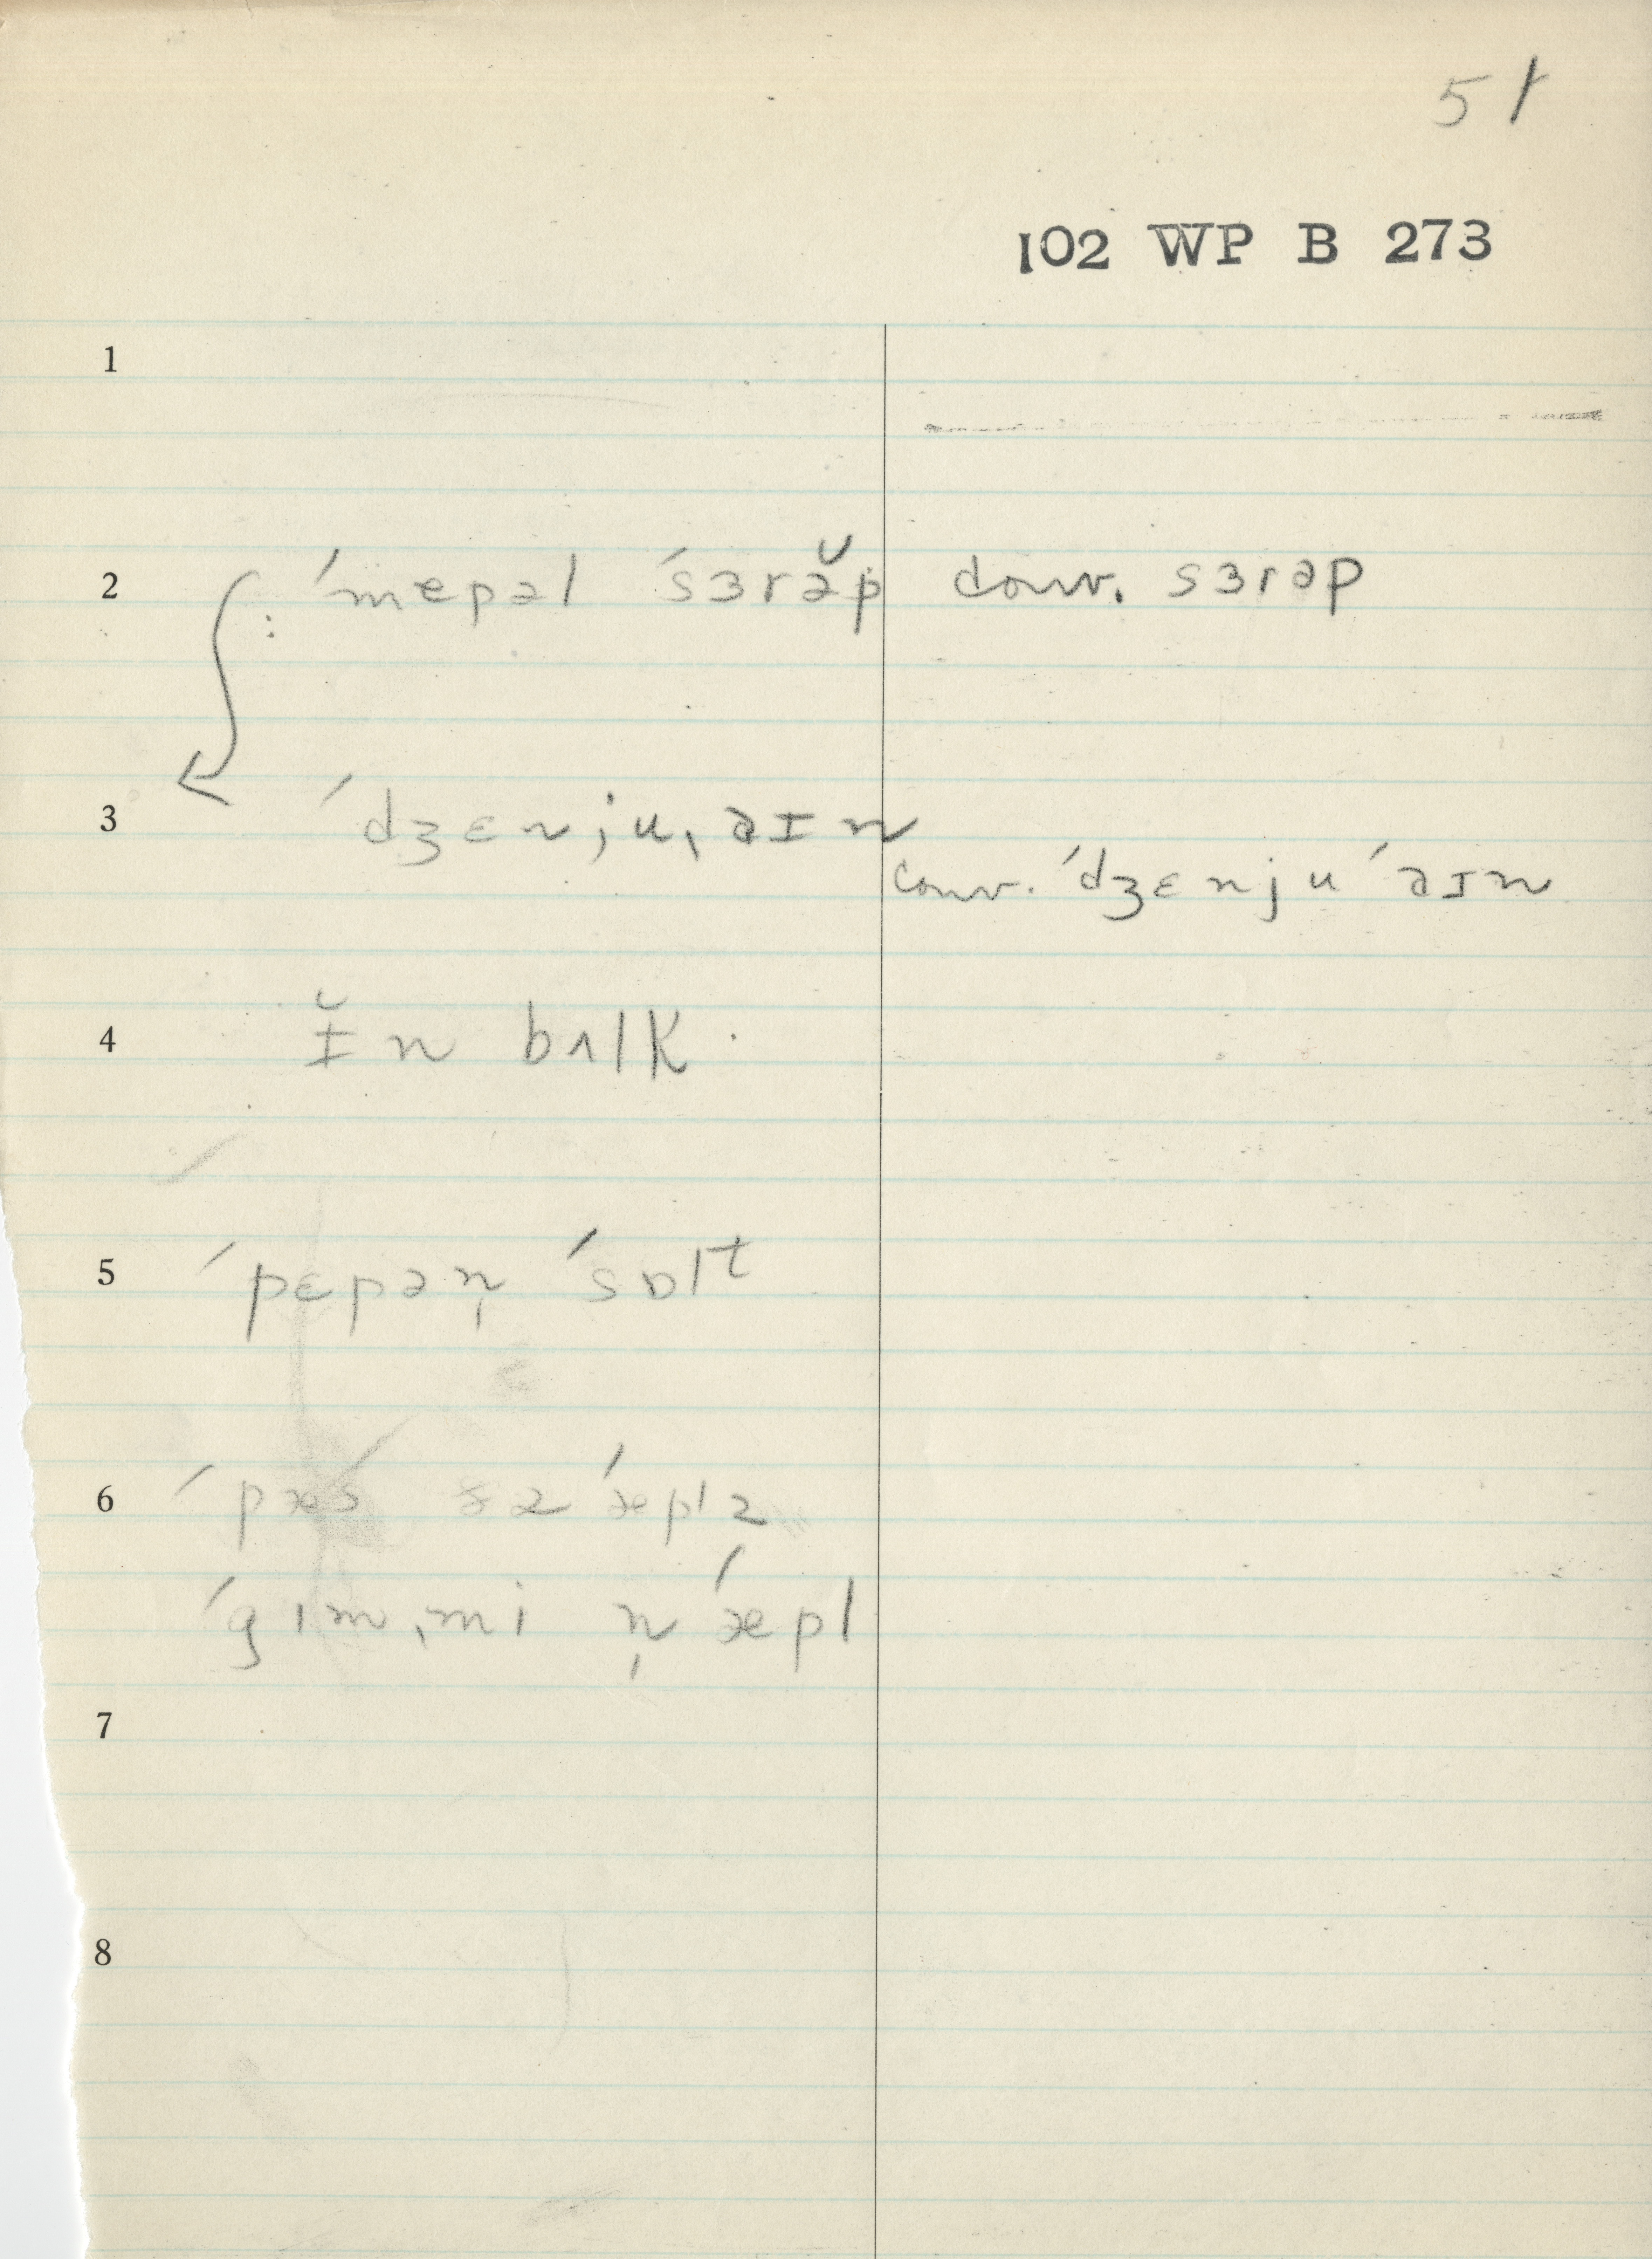 51
102 WP B 273
1
2 : ˈmepəl ˈsɜrə̆p conv. sɜrəp
3 ˈdʒɛnjuˌaɪn
conv. ˈdʒɛnju ˈaɪn
4 ɪ̆n bʌlk
5 ˈpɛpən̩ ˈsɒlt
6
ˈgɪmˌmi n̩ ˈæpl
7
8